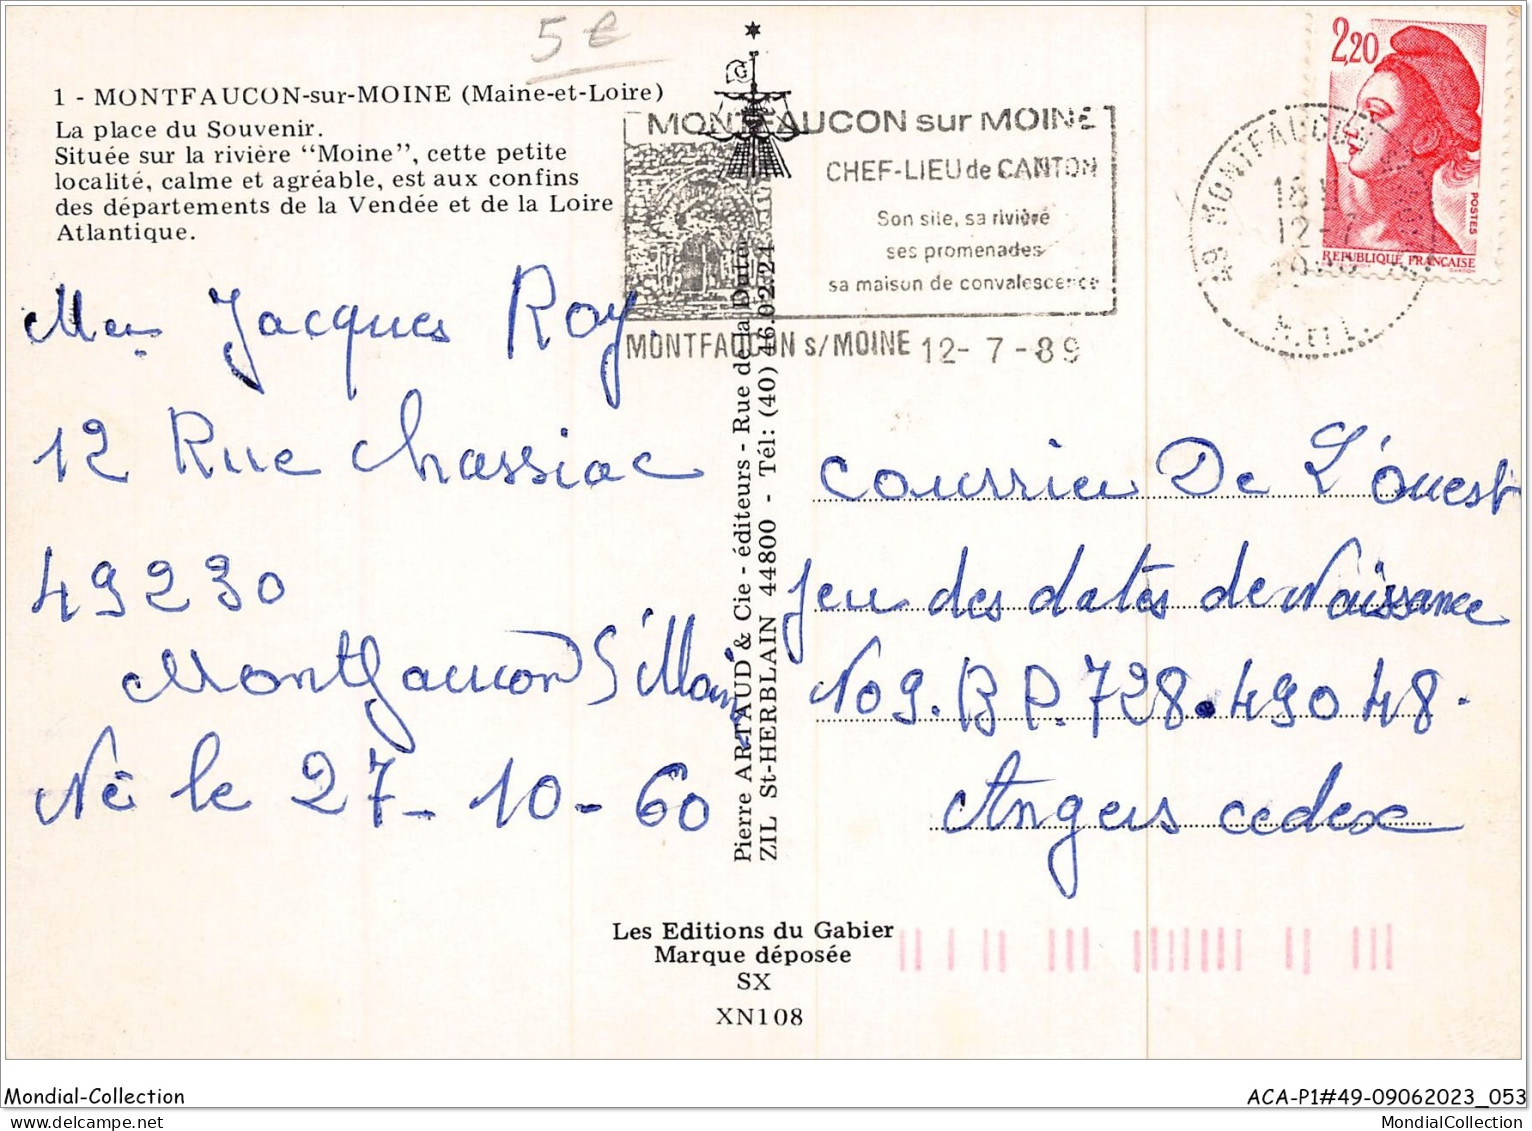 5 €
1 - MONTFAUCON-sur-MOINE (Maine-et-Loire)
La place du Souvenir.
Située sur la rivière “Moine”, cette petite
localité, calme et agréable, est aux confins
des départements de la Vendée et de la Loire
Atlantique.
MONTFAUCON sur MOINE
CHEF-LIEU de CANTON
Son site, sa rivière
ses promenades
sa maison de convalescence
MONTFAUCON s/MOINE 12-7-89
49 MONTFAUCON
18 H
12-7
M. ET L.
2,20
POSTES
REPUBLIQUE FRANCAISE
Jacques Roy
12 Rue Chassiac
49230
Montfaucon S/Moine
Né le 27-10-60
Pierre ARTAUD & Cie - éditeurs - Rue de la Dutée
ZIL St-HERBLAIN 44800 - Tél: (40) 46.02.24
Courrier De L'Ouest
Jeu des dates de Naissance
No 9. B P. 728. 49048.
Angers cedex
Les Editions du Gabier
Marque déposée
SX
XN108
Mondial-Collection
ACA-P1#49-09062023_053
MondialCollection